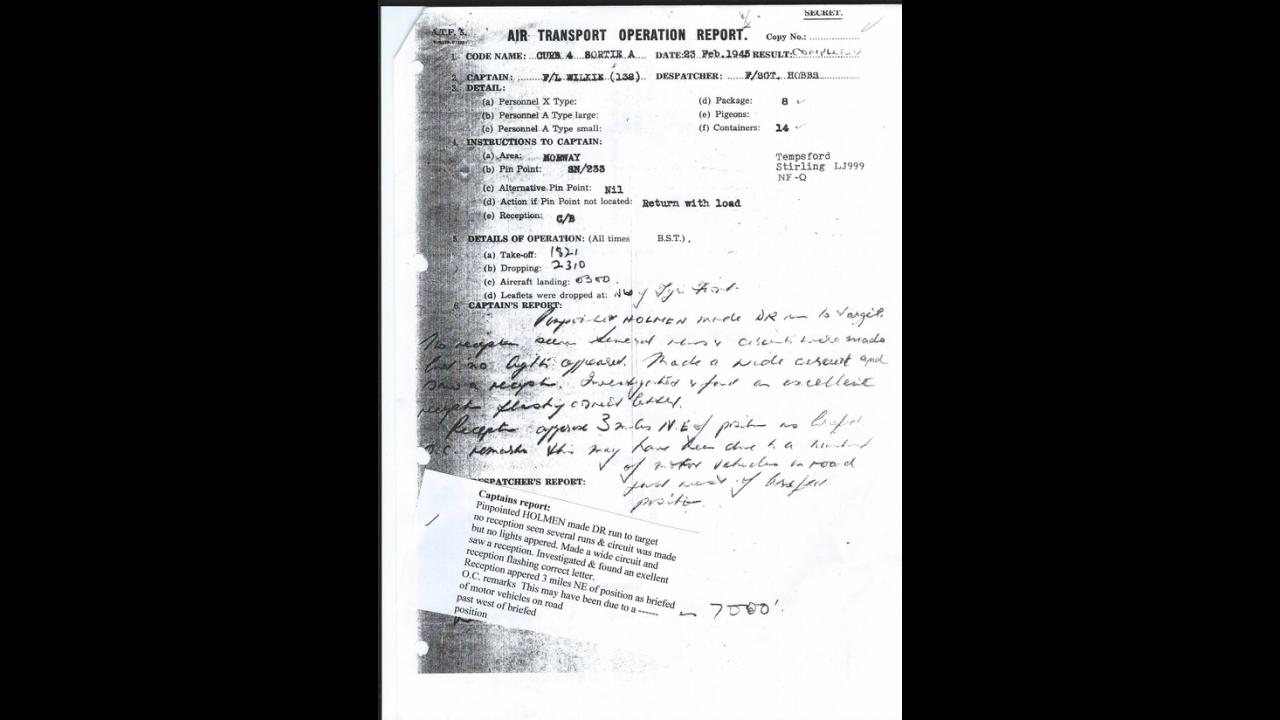 SECRET.
A.T.F. 8.
AIR TRANSPORT OPERATION REPORT.
Copy No.: ....................
1. CODE NAME: ...CUEB 4 SORTIE A.... DATE:23 Feb.1945 RESULT:Completed
2. CAPTAIN: ........F/L WILKIE (138).. DESPATCHER: ......F/SGT. HOBBS............
3. DETAIL:
(a) Personnel X Type:
(d) Package: 8
(b) Personnel A Type large:
(e) Pigeons:
(c) Personnel A Type small:
(f) Containers: 14
4. INSTRUCTIONS TO CAPTAIN:
(a) Area: NORWAY
(b) Pin Point: SN/233
Tempsford
Stirling LJ999
NF-Q
(c) Alternative Pin Point: Nil
(d) Action if Pin Point not located: Return with load
(e) Reception: C/B
5. DETAILS OF OPERATION: (All times B.S.T.).
(a) Take-off: 1821
(b) Dropping: 2310
(c) Aircraft landing: 0300.
(d) Leaflets were dropped at: of
6. CAPTAIN'S REPORT:
Pinpointed HOLMEN made DR run to target.
No reception seen several runs & circuit were made
but no lights appeared. Made a wide circuit and
saw a reception. Investigated & found an excellent
reception flashing correct letter.
Reception approx 3 miles N.E of position as briefed
O.C. remarks this may have been due to a
of motor vehicles on road
just west of briefed
position.
DESPATCHER'S REPORT:
Captains report:
Pinpointed HOLMEN made DR run to target
no reception seen several runs & circuit was made
but no lights appered. Made a wide circuit and
saw a reception. Investigated & found an exellent
reception flashing correct letter.
Reception appered 3 miles NE of position as briefed
O.C. remarks This may have been due to a ------
of motor vehicles on road
past west of briefed
position
7000'.